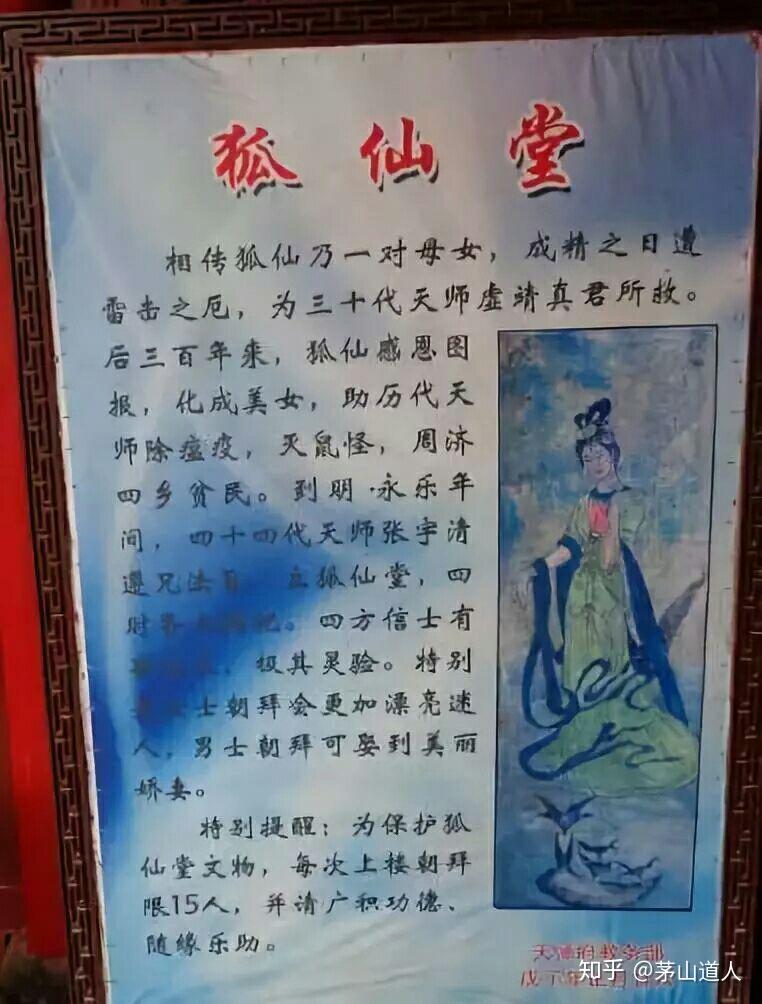 狐仙堂
相传狐仙乃一对母女，成精之日遭
雷击之厄，为三十代天师虚靖真君所救。
后三百年来，狐仙感恩图
报，化成美女，助历代天
师除瘟疫，灭鼠怪，周济
四乡贫民。到明·永乐年
间，四十四代天师张宇清
遵兄法旨，立狐仙堂，四
时。四方信士有
，极其灵验。特别
士朝拜会更加漂亮迷
人，男士朝拜可娶到美丽
娇妻。
特别提醒：为保护狐
仙堂文物，每次上楼朝拜
限15人，并请广积功德、
随缘乐助。
知乎 @茅山道人